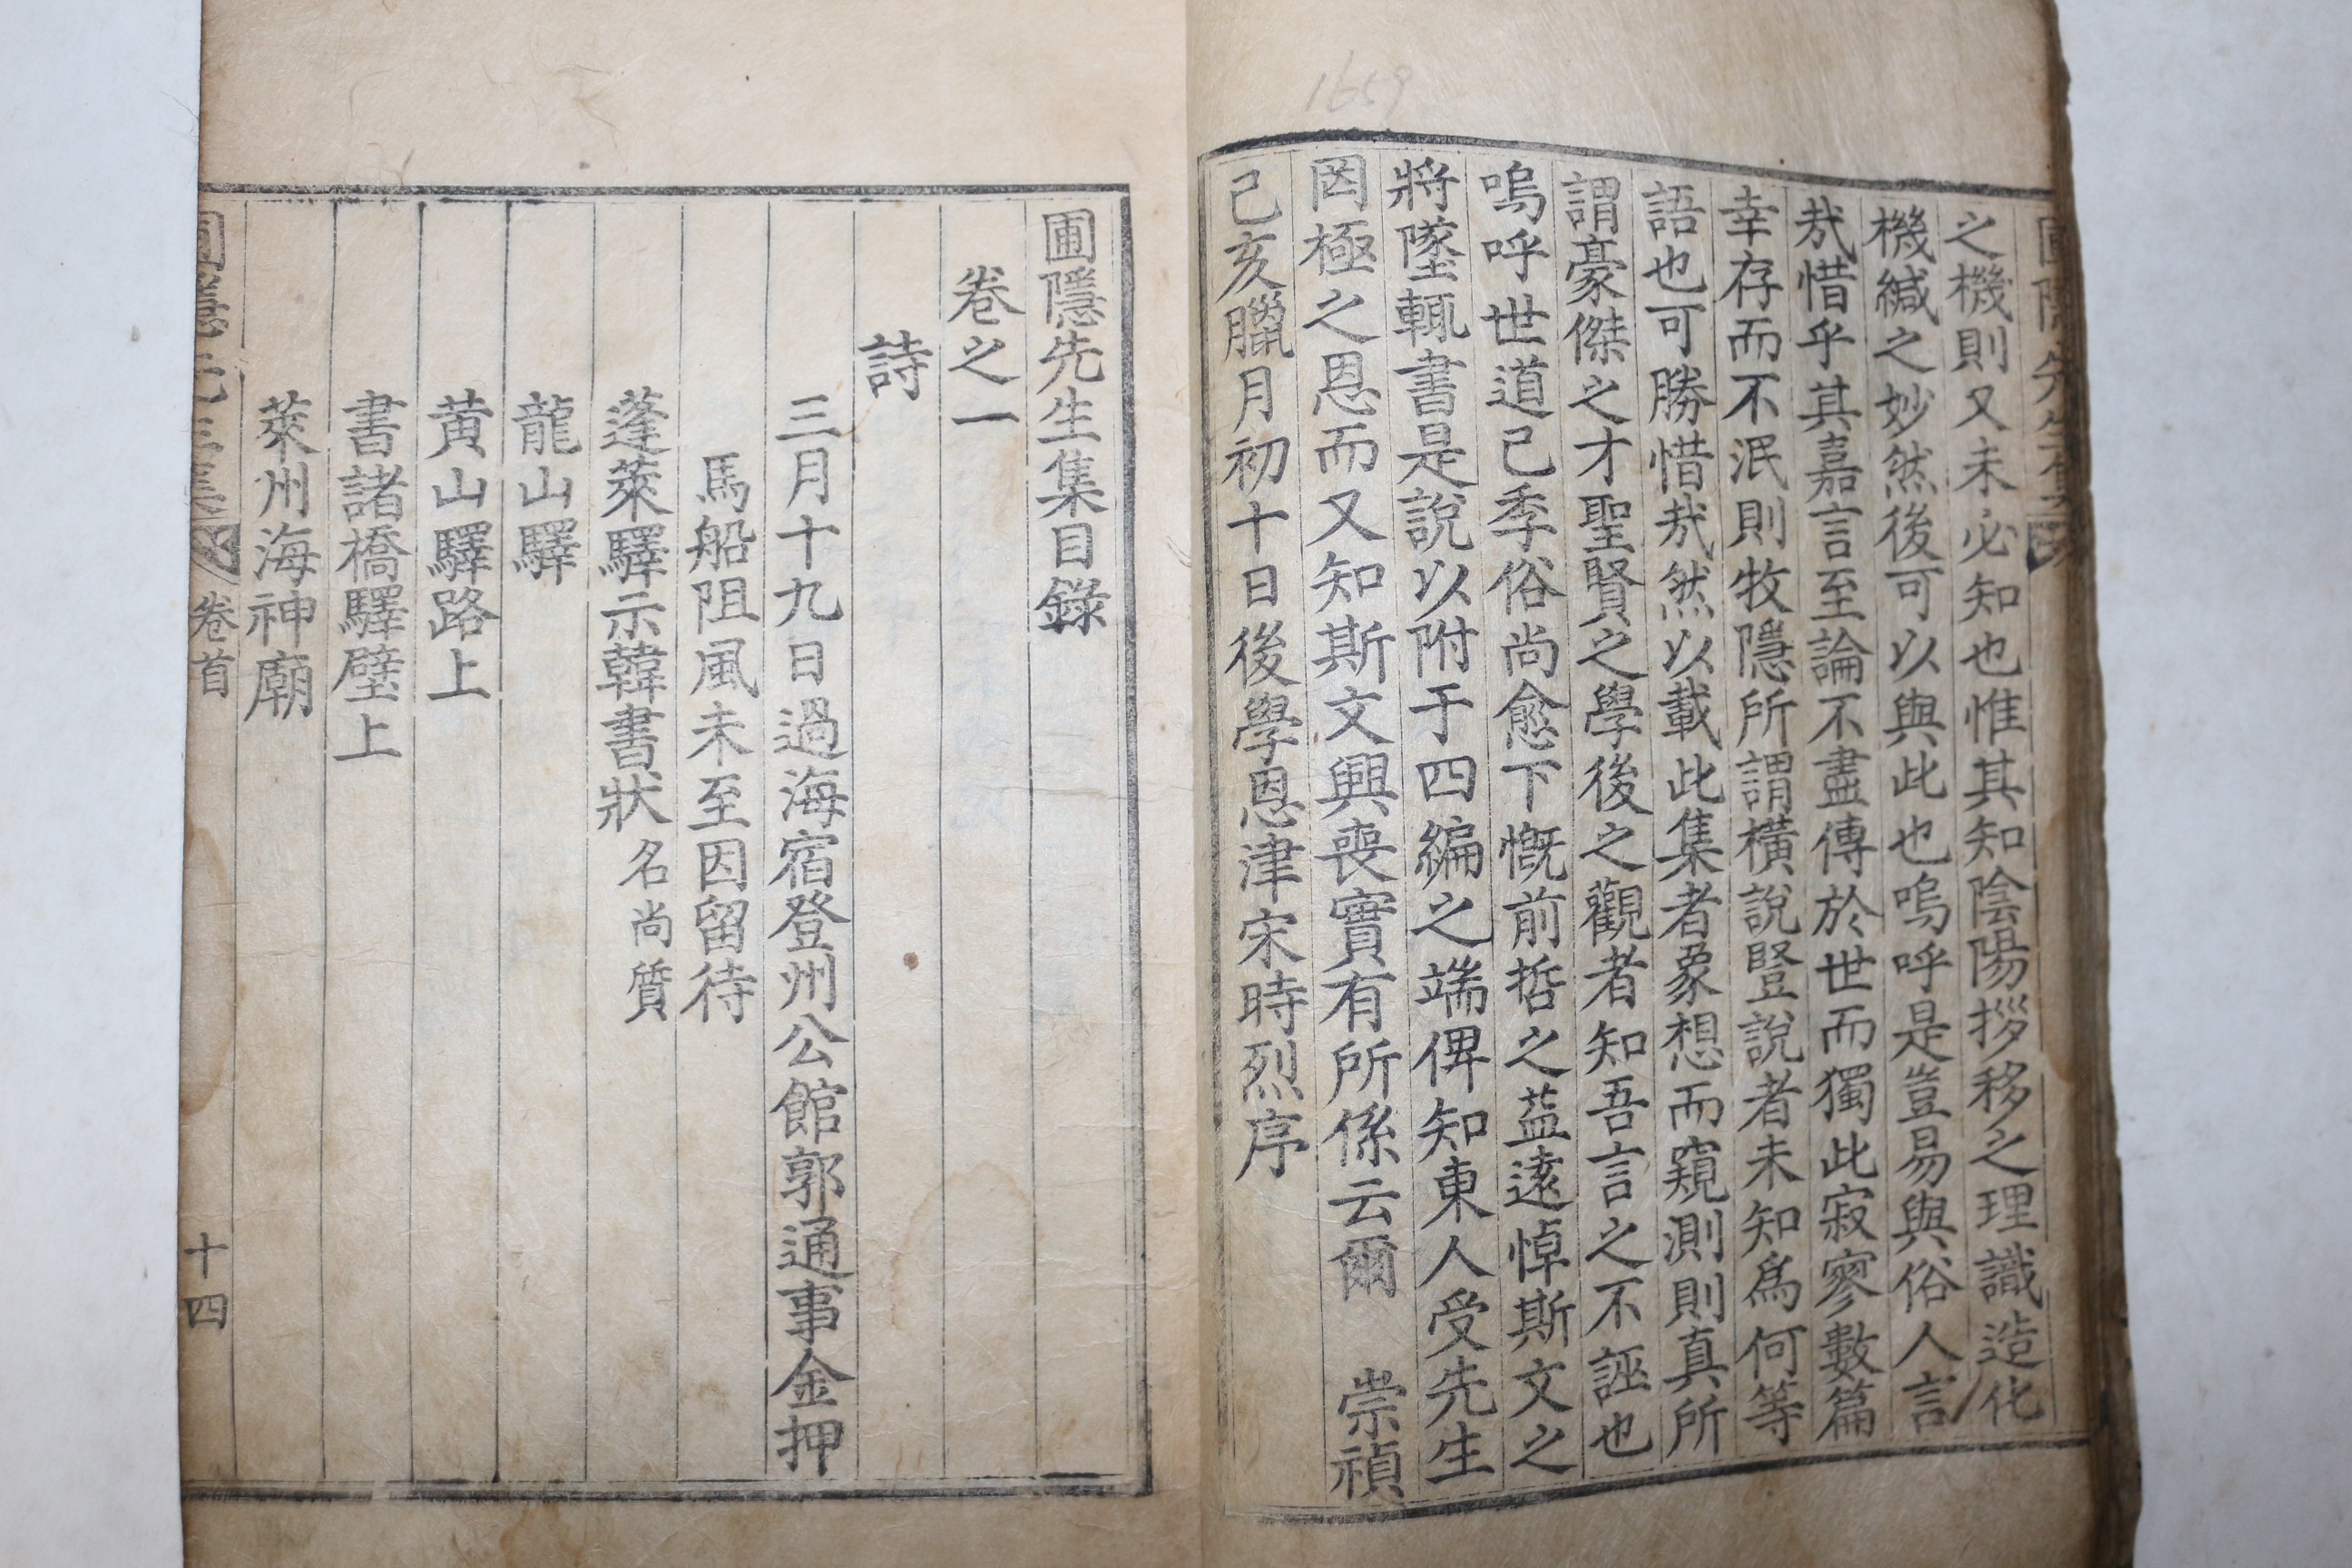 1659
之機則又未必知也惟其知陰陽推移之理識造化
機緘之妙然後可以與此也嗚呼是豈易與俗人言
㢤惜乎其嘉言至論不盡傳於世而獨此寂寥數篇
幸存而不泯則牧隱所謂橫說竪說者未知爲何等
語也可勝惜㢤然以載此集者象想而窺測則真所
謂豪傑之才聖賢之學後之觀者知吾言之不誣也
嗚呼世道已季俗尚愈下慨前哲之益遠悼斯文之
將墜輒書是說以附于四編之端俾知東人受先生
罔極之恩而又知斯文興喪實有所係云爾 崇禎
己亥臘月初十日後學恩津宋時烈序
圃隱先生集目錄
卷之一
詩
三月十九日過海宿登州公館郭通事金押
馬船阻風未至因留待
蓬萊驛示韓書狀名尚質
龍山驛
黃山驛路上
書諸橋驛壁上
萊州海神廟
圃隱先生集 卷首 十四